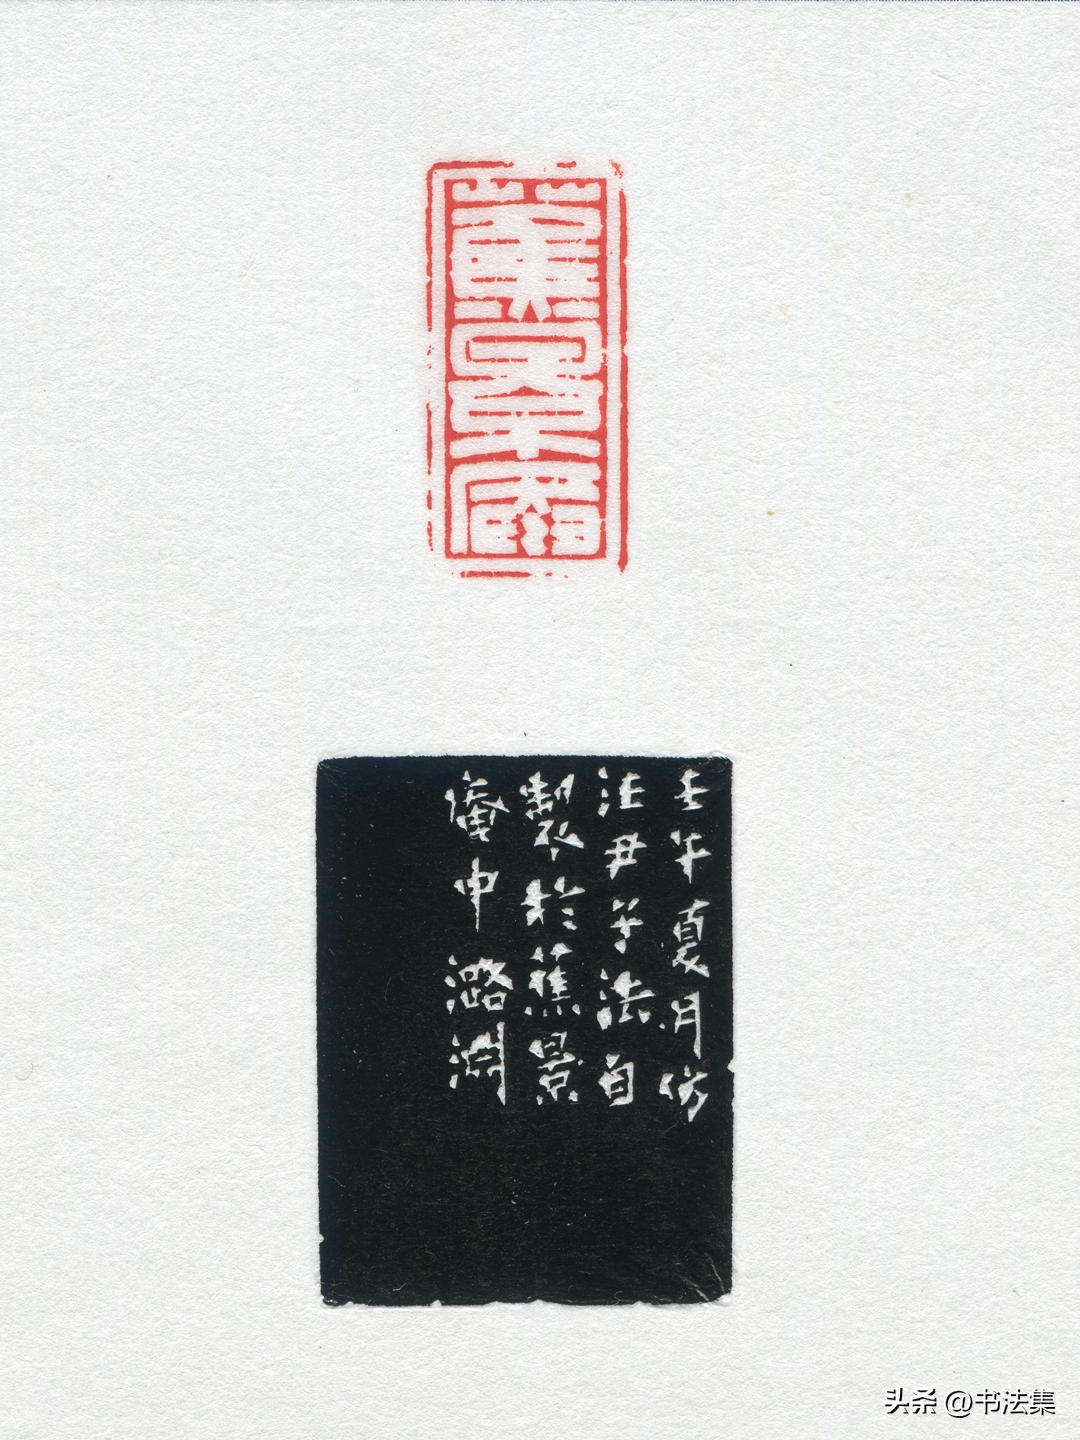 壬午夏月仿
汪尹子法自
製於蕉景
庵中潞淵
头条 @书法集